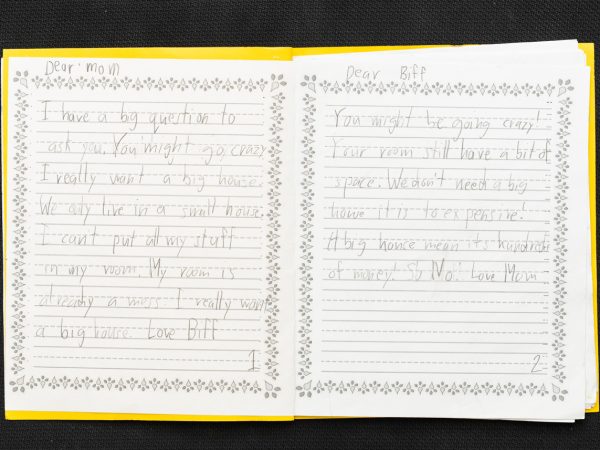 Dear mom
I have a big question to
ask you. You might go crazy
I really want a big house.
We only live in a small house.
I can't put all my stuff
in my room. My room is
already a mess. I really want
a big house. Love Biff
1
Dear Biff
You might be going crazy!
Your room still have a bit of
space. We don't need a big
house it is to expensive!
A big house mean its hundreds
of money! So No! Love Mom
2